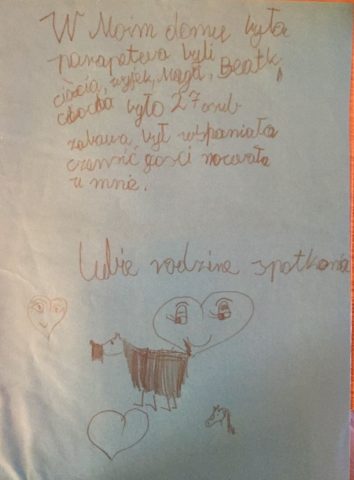 W Moim domu była
parapetuwa byli
ciocia, wujek, Magd, Beatk,
ciocha było 27 osub
zabawa był wspaniała
czenść gości nocowała
u mnie.
Lubie rodzine spotkania